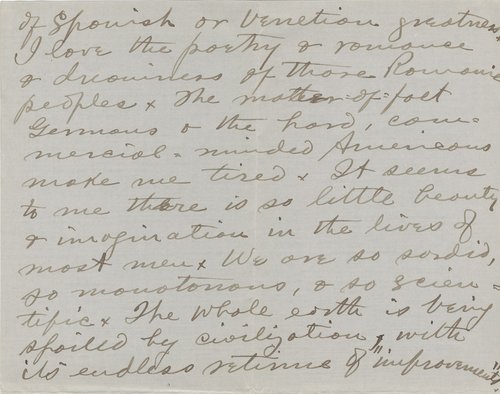 of Spanish or Venetian greatness x
I love the poetry & romance
& dreaminess of those Romanic
peoples x The matter-of-fact
Germans & the hard, com=
mercial-minded Americans
make me tired x It seems
to me there is so little beauty
& imagination in the lives of
most men x We are so sordid,
so monotonous, & so scien=
tific x The whole earth is being
spoiled by civilization, with
its endless retinue of "improvements".